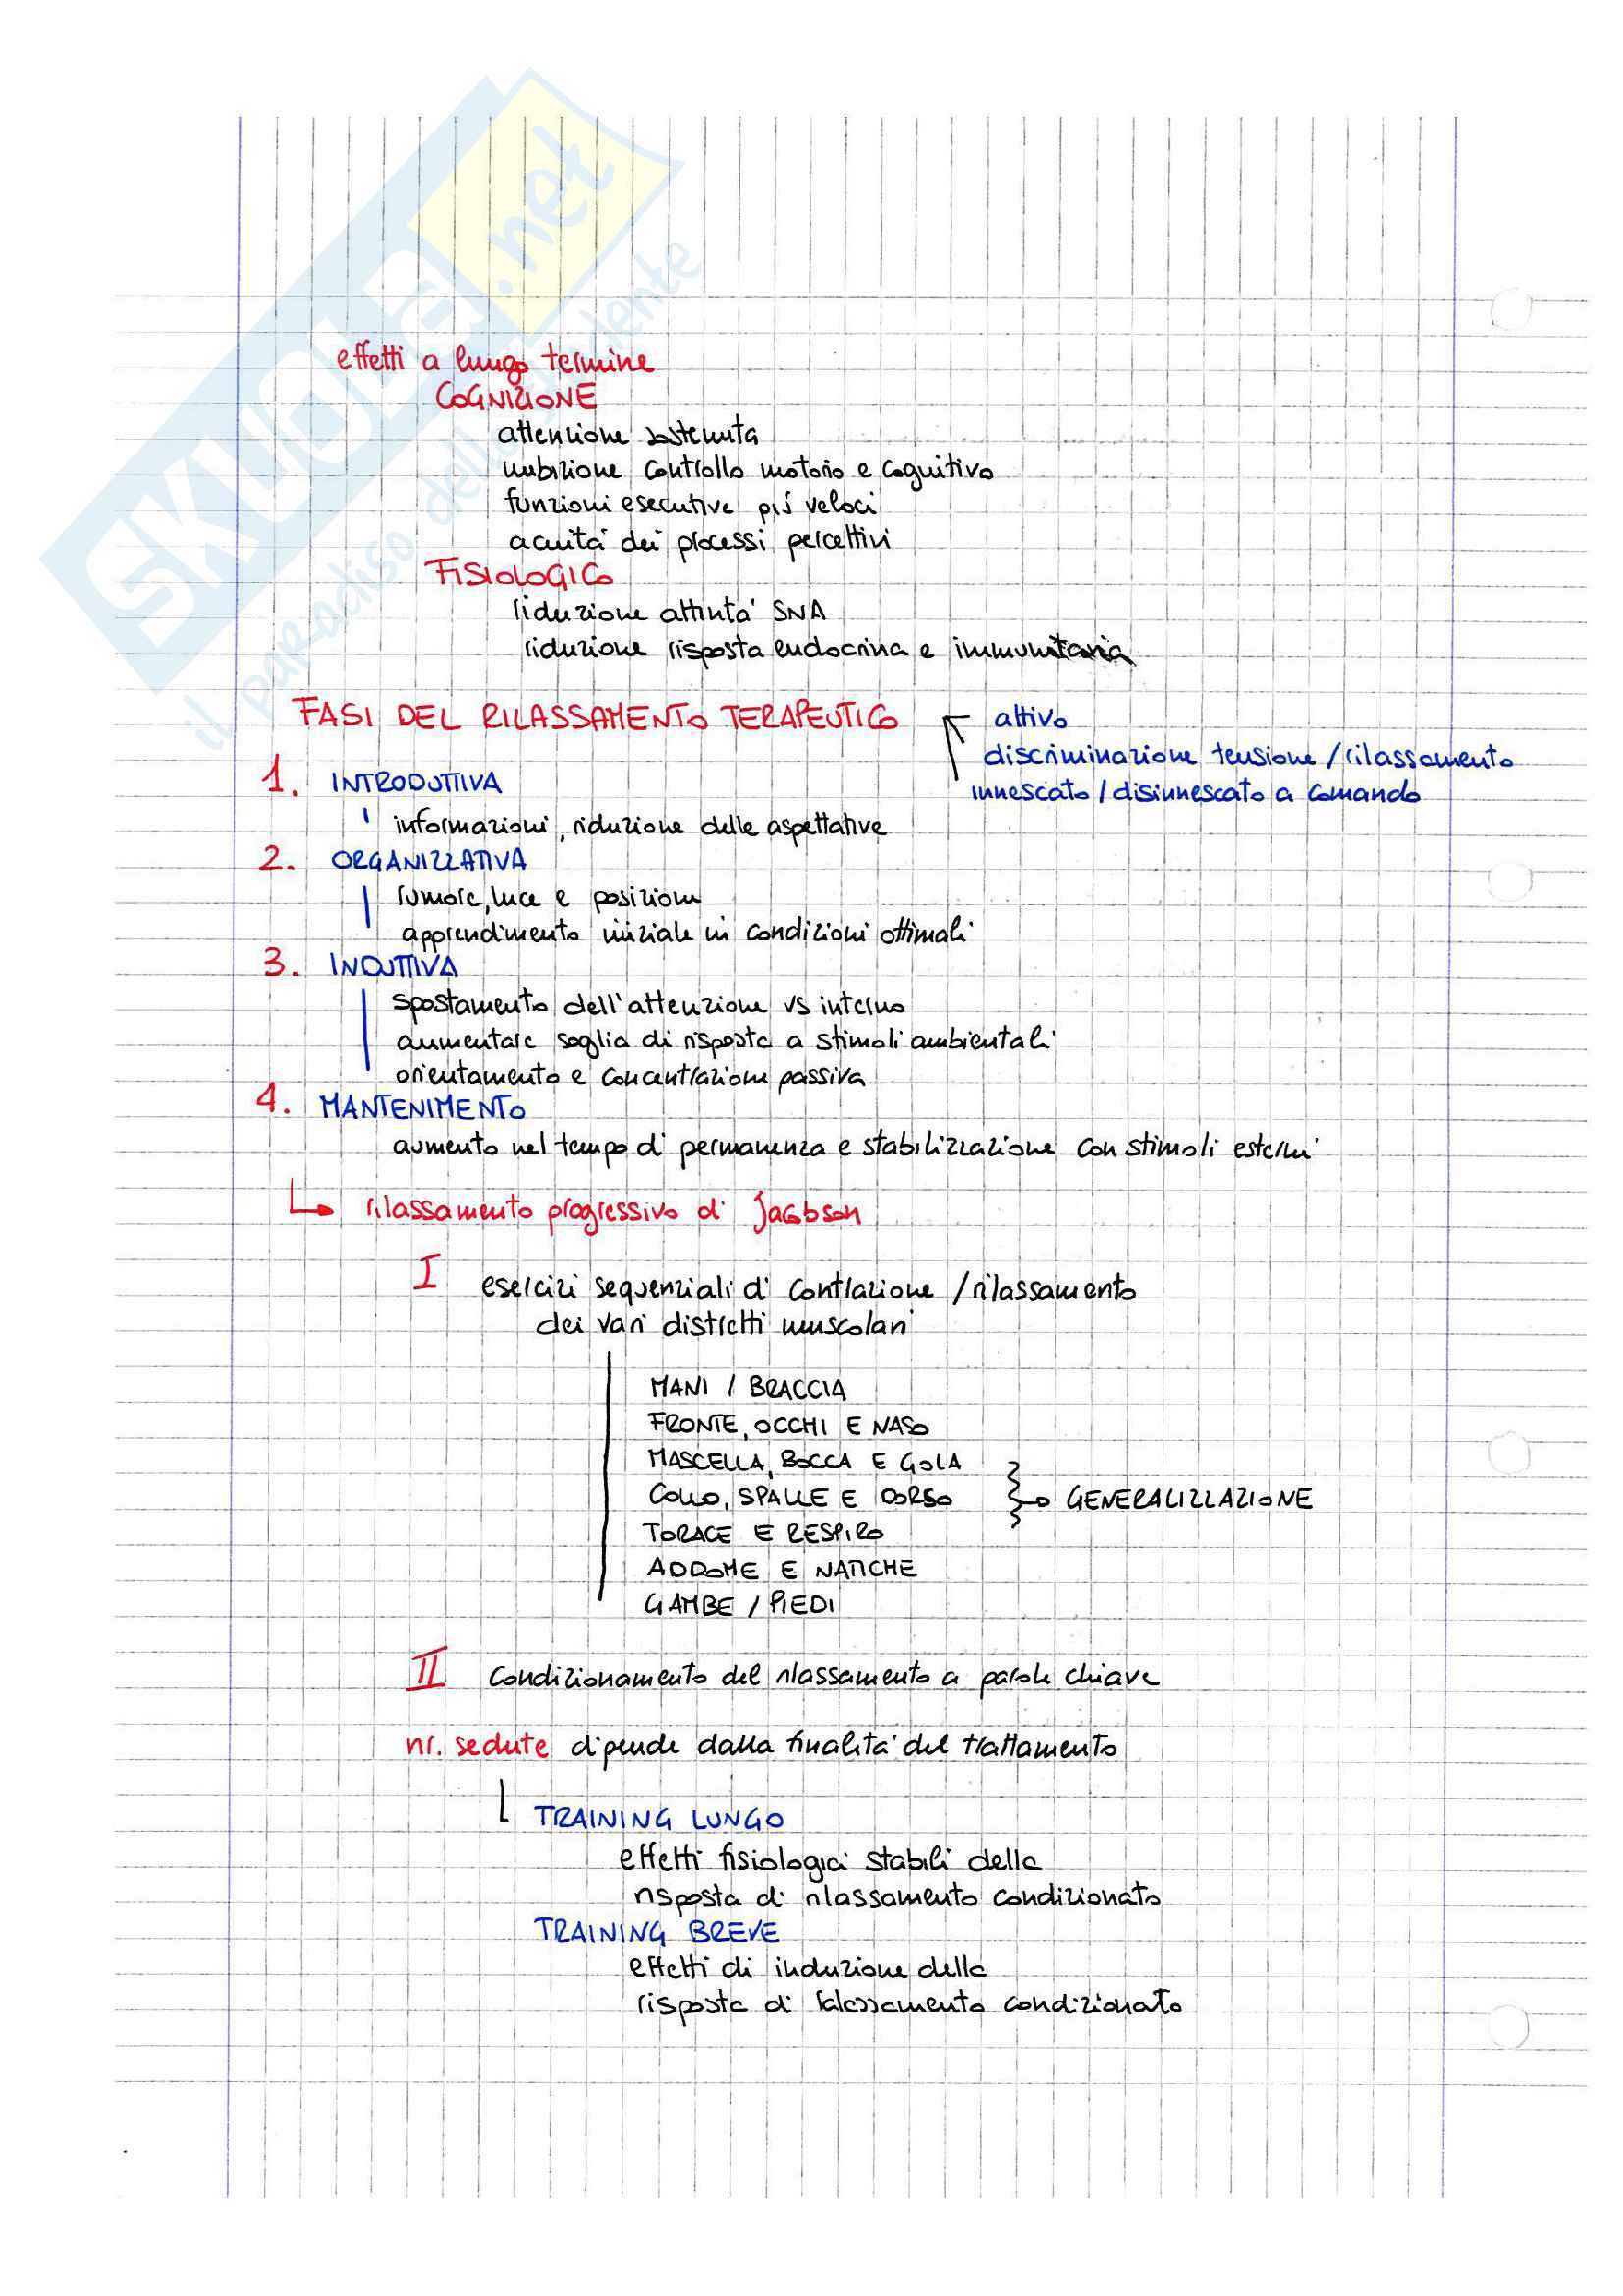 SKUOLA.net
il paradiso dello studente
effetti a lungo termine
COGNIZIONE
attenzione sostenuta
inibizione controllo motorio e cognitivo
funzioni esecutive più veloci
acuità dei processi percettivi
FISIOLOGICO
riduzione attività SNA
riduzione risposta endocrina e immunitaria
FASI DEL RILASSAMENTO TERAPEUTICO
attivo
discriminazione tensione / rilassamento
innescato / disinnescato a comando
1. INTRODUTTIVA
informazioni, riduzione delle aspettative
2. ORGANIZZATIVA
rumore, luce e posizioni
apprendimento iniziale in condizioni ottimali
3. INDUTTIVA
spostamento dell'attenzione vs interno
aumentare soglia di risposta a stimoli ambientali
orientamento e concentrazione passiva
4. MANTENIMENTO
aumento nel tempo di permanenza e stabilizzazione con stimoli esterni
rilassamento progressivo di Jacobson
I esercizi sequenziali di contrazione / rilassamento
dei vari distretti muscolari
MANI / BRACCIA
FRONTE, OCCHI E NASO
MASCELLA, BOCCA E GOLA
COLLO, SPALLE E DORSO
GENERALIZZAZIONE
TORACE E RESPIRO
ADDOME E NATICHE
GAMBE / PIEDI
II condizionamento del rilassamento a parole chiave
nr. sedute dipende dalla finalità del trattamento
TRAINING LUNGO
effetti fisiologici stabili della
risposta di rilassamento condizionato
TRAINING BREVE
effetti di induzione della
risposta di rilassamento condizionato